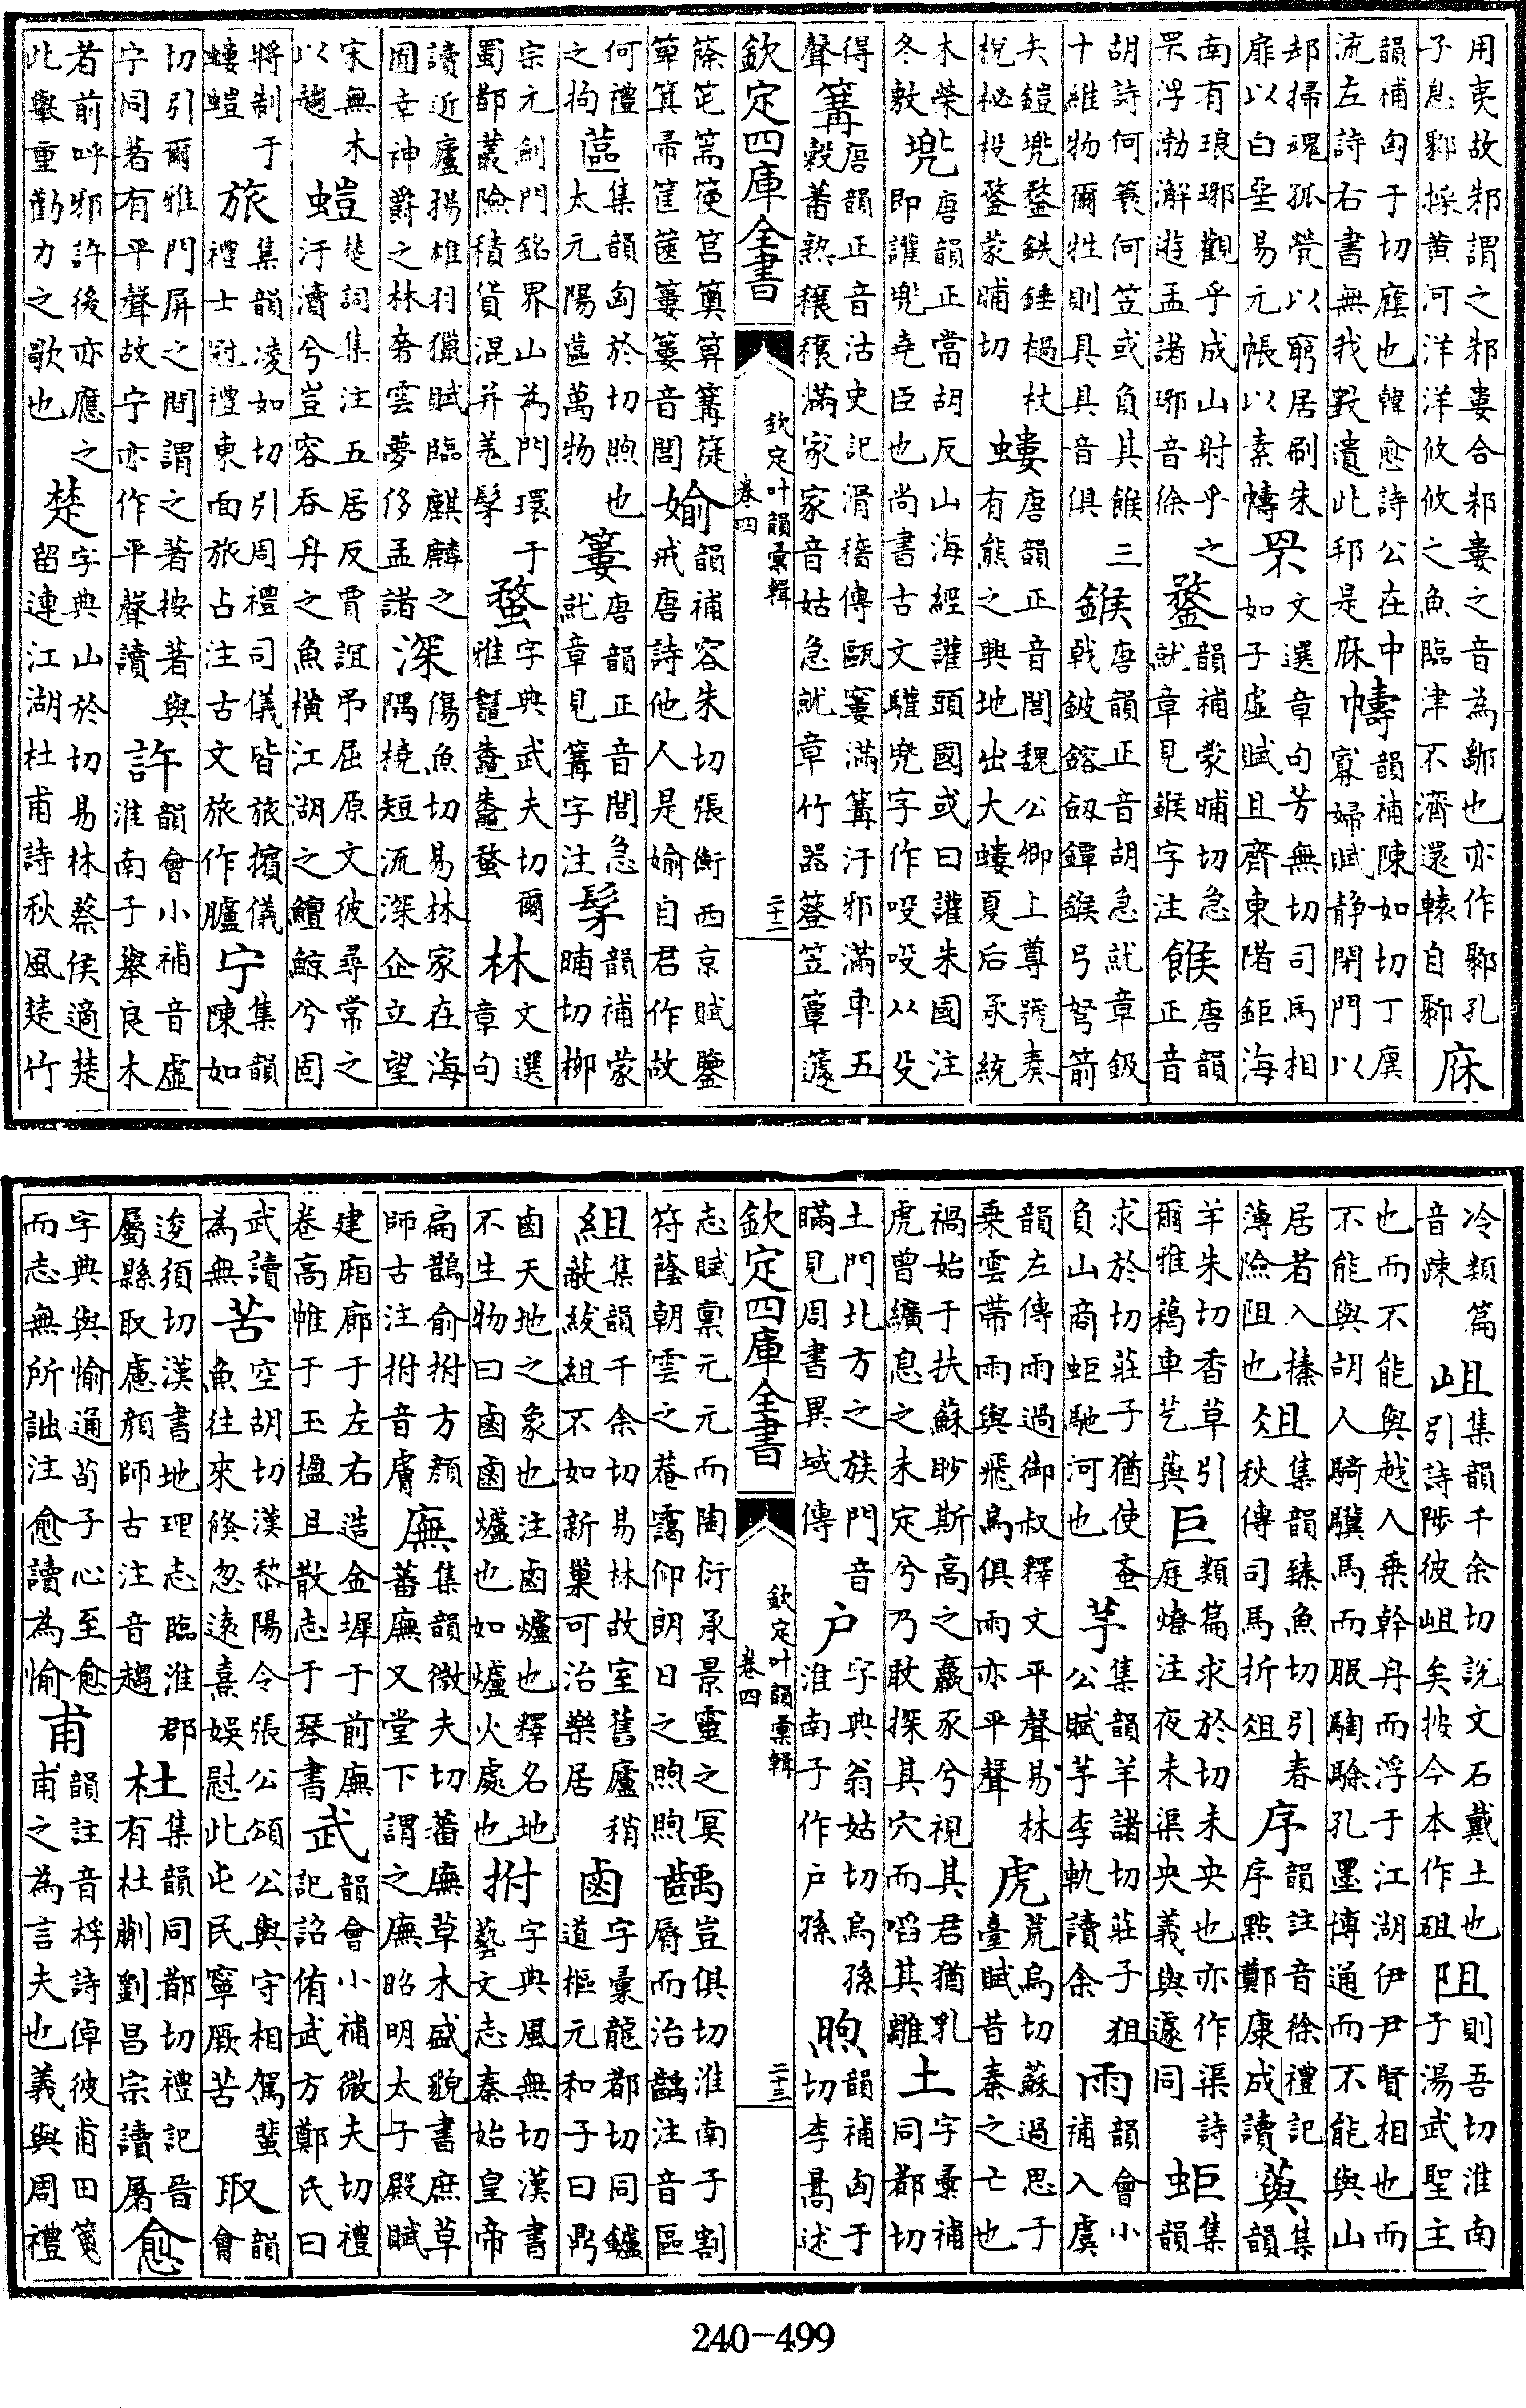 用夷故邾謂之邾婁合邾婁之音為鄹也亦作鄹孔子息鄹操黄河洋洋攸攸之魚臨津不濟還轅自鄹庥
韻補匈于切廕也韓愈詩公在中流左詩右書無我斁遺此邦是庥幬韻補陳如切丁廙寡婦賦静閉門以
却掃魂孤煢以窮居刷朱扉以白堊易元帳以素幬罘文選章句芳無切司馬相如子虚賦且齊東陼鉅海
南有琅琊觀乎成山射乎之罘浮渤澥遊孟諸琊音徐鍪韻補蒙晡切急就章見鍭字注餱唐韻正音
胡詩何蓑何笠或負其餱三十維物爾牲則具具音俱鍭唐韻正音胡急就章鈒戟鈹鎔劔鐔鍭弓弩箭
矢鎧兜鍪鉄錘檛杖梲柲杸鍪蒙晡切螻唐韻正音閭魏公卿上尊號奏有熊之興地出大螻夏后承統
木榮冬敷兜唐韻正當胡反山海經讙頭國或曰讙朱國注即讙兜堯臣也尚書古文驩兜字作吺吺从殳
得聲篝唐韻正音沽史記滑稽傳甌窶滿篝汙邪滿車五穀蕃熟穰穰滿家家音姑急就章竹器簦笠簟籧
欽定四庫全書
欽定叶韻彙輯
卷四
二十二
篨笔篅箯筥䉛箅篝簁箄箕帚筐篋簍簍音閭媮韻補容朱切張衡西京賦鑒戒唐詩他人是媮自君作故
何禮之拘蓲集韻匈於切煦也太元陽蓲萬物簍唐韻正音閭急就章見篝字注髳韻補蒙晡切柳
宗元劍門銘界山為門環于蜀都叢險積貨混并羗髳蝥字典武夫切爾雅鼅鼄鼄蝥林文選章句
讀近廬揚雄羽獵賦臨麒麟之囿幸神爵之林奢雲夢侈孟諸深傷魚切易林家在海隅橈短流深企立望
宋無木以趨螘楚詞集注五居反賈誼弔屈原文彼尋常之汙瀆兮豈容吞丹之魚橫江湖之鱣鯨兮固
將制于螻螘旅集韻凌如切引周禮司儀皆旅擯儀禮士冠禮東面旅占注古文旅作臚宁集韻陳如
切引爾雅門屏之間謂之著按著與字同著有平聲故宁亦作平聲讀許韻會小補音虚淮南子舉良木
者前呼邪許後亦應之此舉重勸力之歌也楚字典山於切易林蔡侯適楚留連江湖杜甫詩秋風楚竹
冷類篇音疎岨集韻千余切說文石戴土也引詩陟彼岨矣按今本作砠阻則吾切淮南子湯武聖主
也而不能與越人乘幹舟而浮于江湖伊尹賢相也而不能與胡人騎騵馬而服騊駼孔墨博通而不能與山
居者入榛薄險阻也俎集韻臻魚切引春秋傳司馬折俎序韻註音徐禮記序點鄭康成讀藇集韻
羊朱切香草引爾雅藒車艺藇巨類篇求於切未央也亦作渠詩庭燎注夜未渠央義與遽同蚷集韻
求於切莊子猶使蚉負山商蚷馳河也芧集韻羊諸切莊子狙公賦芧李軌讀余雨韻會小補入虞
韻左傳雨過御叔釋文平聲易林乗雲帶雨與飛鳥俱雨亦平聲虎荒烏切蘇過思子臺賦昔秦之亡也
禍始于扶蘇眇斯高之羸豕兮視其君猶乳虎曾纊息之未定兮乃敢探其穴而啗其雛土字彙補同都切
土門北方之族門音瞞見周書異域傳户字典翁姑切烏孫淮南子作户孫煦韻補匈于切李暠述
欽定四庫全書
欽定叶韻彙輯
卷四
二十三
志賦禀元元而陶衍承景靈之冥符蔭朝雲之菴靄仰朗日之煦煦齲豈俱切淮南子割脣而治齲注音區
組集韻千余切易林故室舊廬稍蔽紱組不如新巢可治樂居鹵字彙龍都切同鑪道樞元和子曰鼎
鹵天地之象也注鹵爐也釋名地不生物曰鹵鹵爐也如爐火處也拊字典風無切漢書藝文志秦始皇帝
扁鵲俞拊方顔師古注拊音膚廡集韻微夫切蕃廡草木盛貌書庶草蕃廡又堂下謂之廡昭明太子殿賦
建廂廊于左右造金墀于前廡卷高帷于玉楹且散志于琴書武韻會小補微夫切禮記詔侑武方鄭氏曰
武讀為無苦空胡切漢黎陽令張公頌公與守相駕蜚魚往來倏忽遠熹娱慰此屯民寧厥苦取韻會
逡須切漢書地理志臨淮郡屬縣取慮顔師古注音趨杜集韻同都切禮記晋有杜蒯劉昌宗讀屠愈
字典與愉通荀子心至愈而志無所詘注愈讀為愉甫韻註音桴詩倬彼甫田箋甫之為言夫也義與周禮
240-499